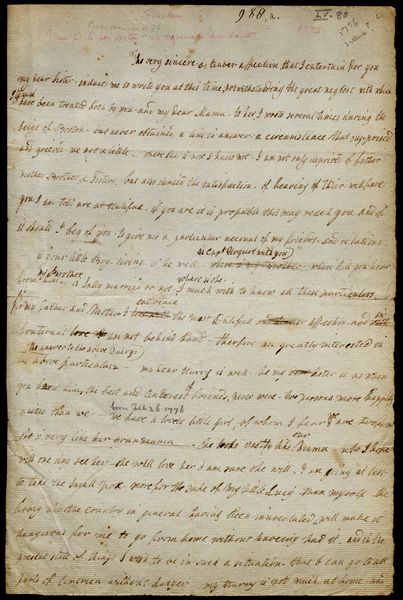 988 a.
LV-80
1776
The very sincere & tender affection that I entertain for you
my dear Sister - induce me to write you at this time, notwithstanding the great neglect with which
have been treated both by you and my dear Mama to her I wrote several times during the
Seige of Boston - but never obtained a line in answer a circumstance that surpressed
and greived me not a little - where she is now I know not - I am not only deprived of father
mother Brother & Sister, but also denied the satisfaction of hearing of their wellfare
you I am told are at Halifax - if you are it is propable this may reach you and if
it should I beg of you to give me a particular account of my friends and relations
is Capt Urquart with you
is your little Boy living is he well - where is my Brother - when did you hear
my Brother where is she
from him - is Sally married or not I much wish to know all these particulars
entertain
for my father and Mother I the most Dutifull affection and
fraternal love am not behind hand - therefore am greatly interested in
the above particulars - my dear Harry is well - he is as when
you knew him, the best and tenderest of friends, never were two persons more happily
born Feb 26 1776
united than we - We have a lovely little girl - of whom I fear
for a very like her Grandmama -
will one day see her - she will love her I am sure she will. I am going at last
to take the Small Pox more for the sake of my little Lucy than myself - the
Army and the Country in general having been innoculated, will make it
dangerous for me to go from home without haveing had it - and in the
present state of things I wish to be in such a situation that I can go to all
parts of America without danger - my Harry is not much at home - and